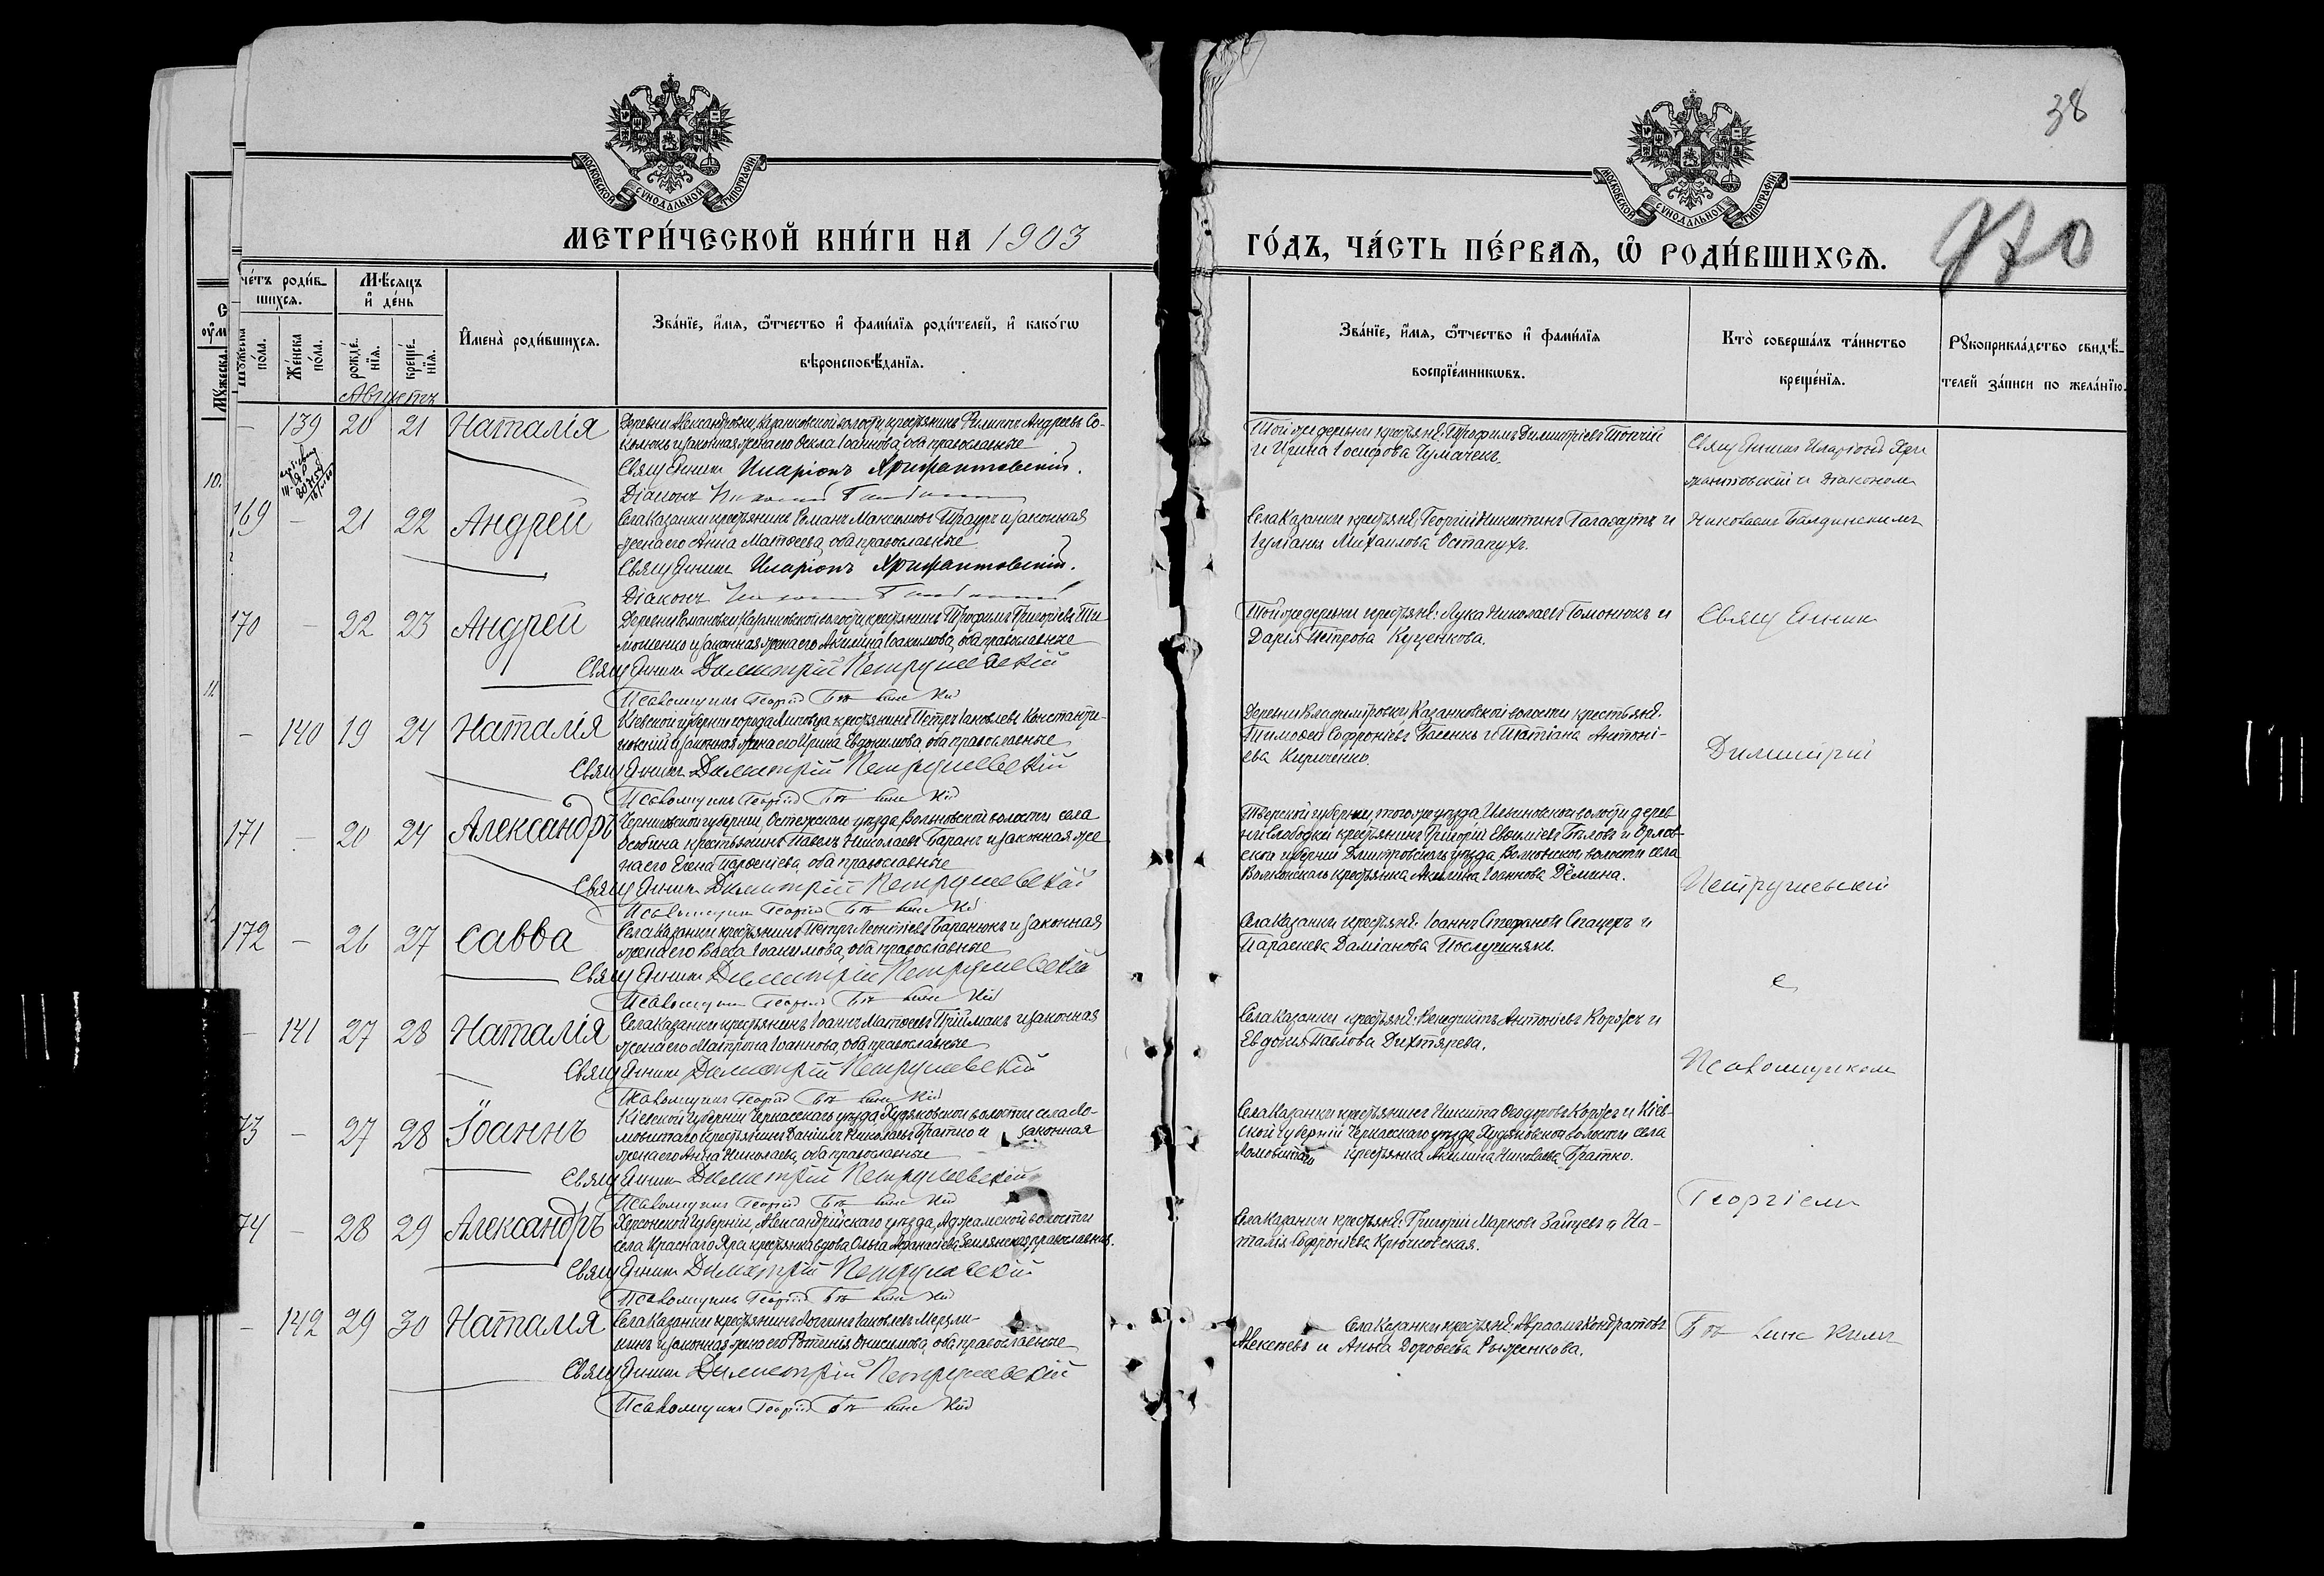 38
МОСКОВСКОЙ СѴНОДАЛЬНОЙ ТИПОГРАФІИ
МОСКОВСКОЙ СѴНОДАЛЬНОЙ ТИПОГРАФІИ
МЕТРИ́ЧЕСКОЙ КНИ́ГИ НА 1903
ГО́ДЪ, ЧА́СТЬ ПЕ́РВАѦ, Ѡ҆ РОДИ́ВШИХСѦ.
че́тъ роди́в-
шихсѧ.
Мѣ́сѧцъ
и҆ де́нь
И҆мена̀ роди́вшихсѧ.
Зва́нїе, и҆́мѧ, ѻ҆́тчество и҆ фами́лїѧ роди́телей, и҆ како́гѡ
вѣроисповѣ́данїѧ.
Зва́нїе, и҆́мѧ, ѻ҆́тчество и҆ фами́лїѧ
воспрїе́мникѡвъ.
Кто̀ соверша́лъ та́инство
креще́нїѧ.
Рꙋкоприкла́дство свидѣ́-
телей за́писи по жела́нїю.
Мꙋ́жеска по́ла.
Же́нска по́ла.
рожде́-нїѧ.
креще́-нїѧ.
Августъ
— 139 20 21 Наталія
Деревни Александровки, Казанковской волости крестьянинъ Филиппъ Андреевъ Со-
колюкъ и законная жена его Ѳекла Іоаннова, оба православные
Священникъ Иларіонъ Хрисантовскій.
Діаконъ
Той же деревни крестьяне: Трофимъ Димитріевъ Топчій
и Ирина Іосифова Чумаченк.
Священникъ Иларіонъ Хри
сантовскій и діакономъ
169 — 21 22 Андрей
Села Казанки крестьянинъ Романъ Максимовъ Трауръ и законная
жена его Анна Матѳеева, оба православные
Священникъ Иларіонъ Хрисантовскій.
Діаконъ
Села Казанки крестьяне: Георгій Никитинъ Галагутъ и
Іуліанія Михаилова Остапухъ.
Николаемъ Балдинскимъ
170 — 22 23 Андрей
Деревни Романовки, Казанковской волости, крестьянинъ Трофимъ Григорьевъ Ти-
мошенко и законная жена его Акилина Іоакимова, оба православные
Священникъ Димитрій Петрушевскій
Псаломщикъ Георгій
Той же деревни крестьяне: Лука Николаевъ Гомонюкъ и
Дарія Петрова Куценкова.
Священник
— 140 19 24 Наталія
Кіевской губерніи города Липовца крестьянинъ Петръ Іаковлевъ Константи-
новскій и законная жена его Ирина Евдокимова, оба православные
Священникъ Димитрій Петрушевскій
Псаломщикъ Георгій
Деревни Владиміровки Казанковской волости крестьяне:
Тимоѳей Софроніевъ Басенкъ и Татіана Антоні-
ева Кириченко.
Димитрій
171 — 20 24 Александръ
Черниговской губерніи, Остерскаго уѣзда, волости села
крестьянинъ Павелъ Николаевъ Баранъ и законная же
на его Елена Парѳеніева, оба православные
Священникъ Димитрій Петрушевскій
Псаломщикъ Георгій
Тверской губерніи, того же уѣзда Ильиновской волости дерев
ни Слободки крестьянинъ Григорій Евѳиміевъ Бѣловъ и Орлов-
ской губерніи Дмитровскаго уѣзда, Волковской волости села
Волконскаго крестьянка Акилина Іоаннова Дёмина.
Петрушевскій
172 — 26 27 Савва
Села Казанки крестьянинъ Петръ Леонтіевъ Баранюкъ и законная
жена его Васса Іоакимова, оба православные
Священникъ Димитрій Петрушевскій
Псаломщикъ Георгій
Села Казанки крестьяне: Іоаннъ Стефановъ Спацеръ и
Параскева Даміанова Послушнякъ.
с
— 141 27 28 Наталія
Села Казанки крестьянинъ Іоаннъ Матѳеевъ Приймакъ и законная
жена его Матрона Іоаннова, оба православные
Священникъ Димитрій Петрушевскій
Псаломщикъ Георгій
Села Казанки крестьяне: Венедиктъ Антоніевъ Коржъ и
Евдокія Павлова Дихтярева.
Псаломщиком
73 — 27 28 Іоаннъ
Кіевской губерніи Черкасскаго уѣзда Худяковской волости села Ло-
моватаго крестьянинъ Даніилъ Николаевъ Братко и законная
жена его Анна Николаева, оба православные
Священникъ Димитрій Петрушевскій
Псаломщикъ Георгій
Села Казанки крестьянинъ Никита Ѳеодоровъ Коржъ и Кіев-
ской губерніи Черкасскаго уѣзда, Худяковской волости села
Ломоватаго крестьянка Акилина Николаева Братко.
Георгіемъ
74 — 28 29 Александръ
Херсонской губерніи, Александрійскаго уѣзда, Аджамской волости
села Краснаго Яра крестьянка вдова Ольга Аѳанасіева Землянская, православная.
Священникъ Димитрій Петрушевскій
Псаломщикъ Георгій
Села Казанки крестьяне: Григорій Марковъ Зайцевъ и На-
талія Софроніева Крючковская.
— 142 29 30 Наталія
Села Казанки крестьянинъ Логгинъ Іаковлевъ Мерзли-
кинъ и законная жена его Фотинія Онисимова, оба православные
Священникъ Димитрій Петрушевскій
Псаломщикъ Георгій
Села Казанки крестьяне: Авраамъ Кондратовъ
Алексѣевъ и Анна Дороѳеева Рыженкова.
10.
11.